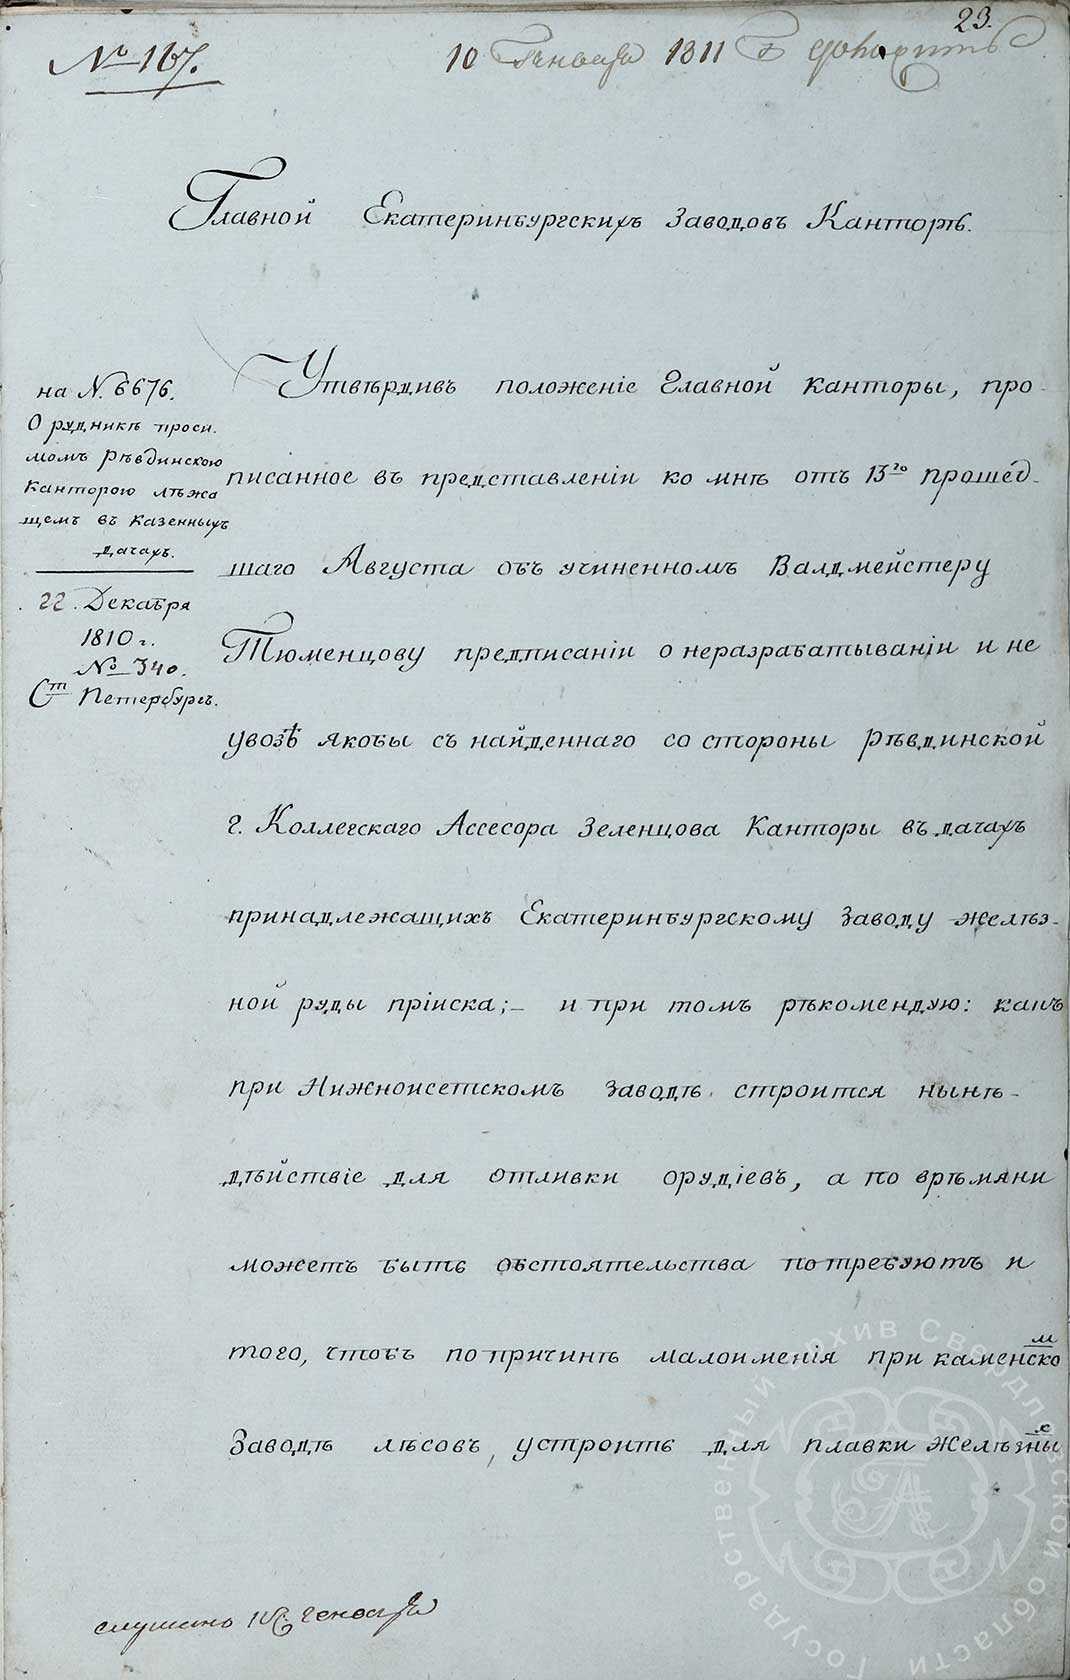 23.
№ 167.
10 Генваря 1811
Главной Екатеринбургскихъ Заводовъ Канторѣ.
на N. 6676.
О рудникѣ проси-
момъ Рѣвдинскою
Канторою лѣжа
щемъ въ казенныхъ
дачахъ.
22. Декабря
1810 г.
№ 340.
Ст Петербургъ.
Утвѣрдивъ положеніе Главной Канторы, про-
писанное въ представленіи ко мнѣ отъ 13го прошед-
шаго Августа объ учиненномъ Валдмейстеру
Тюменцову предписаніи о неразрабатываніи и не
увозѣ якобы съ найденнаго со стороны Рѣвдинской
г. Коллегскаго Ассесора Зеленцова Канторы въ дачахъ
принадлежащихъ Екатеринбургскому Заводу желѣз-
ной руды пріиска;- и при томъ рѣкомендую: какъ
при Нижноисетскомъ Заводѣ строится нынѣ-
дѣйствіе для отливки орудіевъ, а по врѣмяни
можетъ быть обстоятельства потребуютъ и
того, чтобъ по причинѣ малоименія при каменском
Заводѣ лѣсовъ, устроить для плавки желѣзных
слушано 10 генваря
Государственный архив Свердловской области